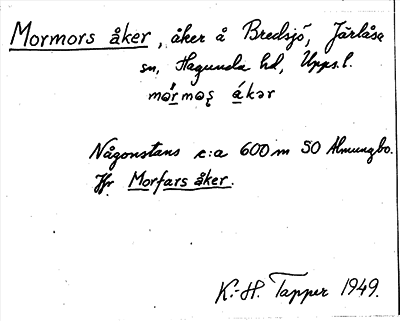 Mormors åker, åker å Bredsjö, Järlåsa
sn, Hagunda hd, Upps.l.
mórmoʂ ákər
Någonstans c:a 600 m SO Almungbo.
Jfr Morfars åker.
K.-H. Tapper 1949.